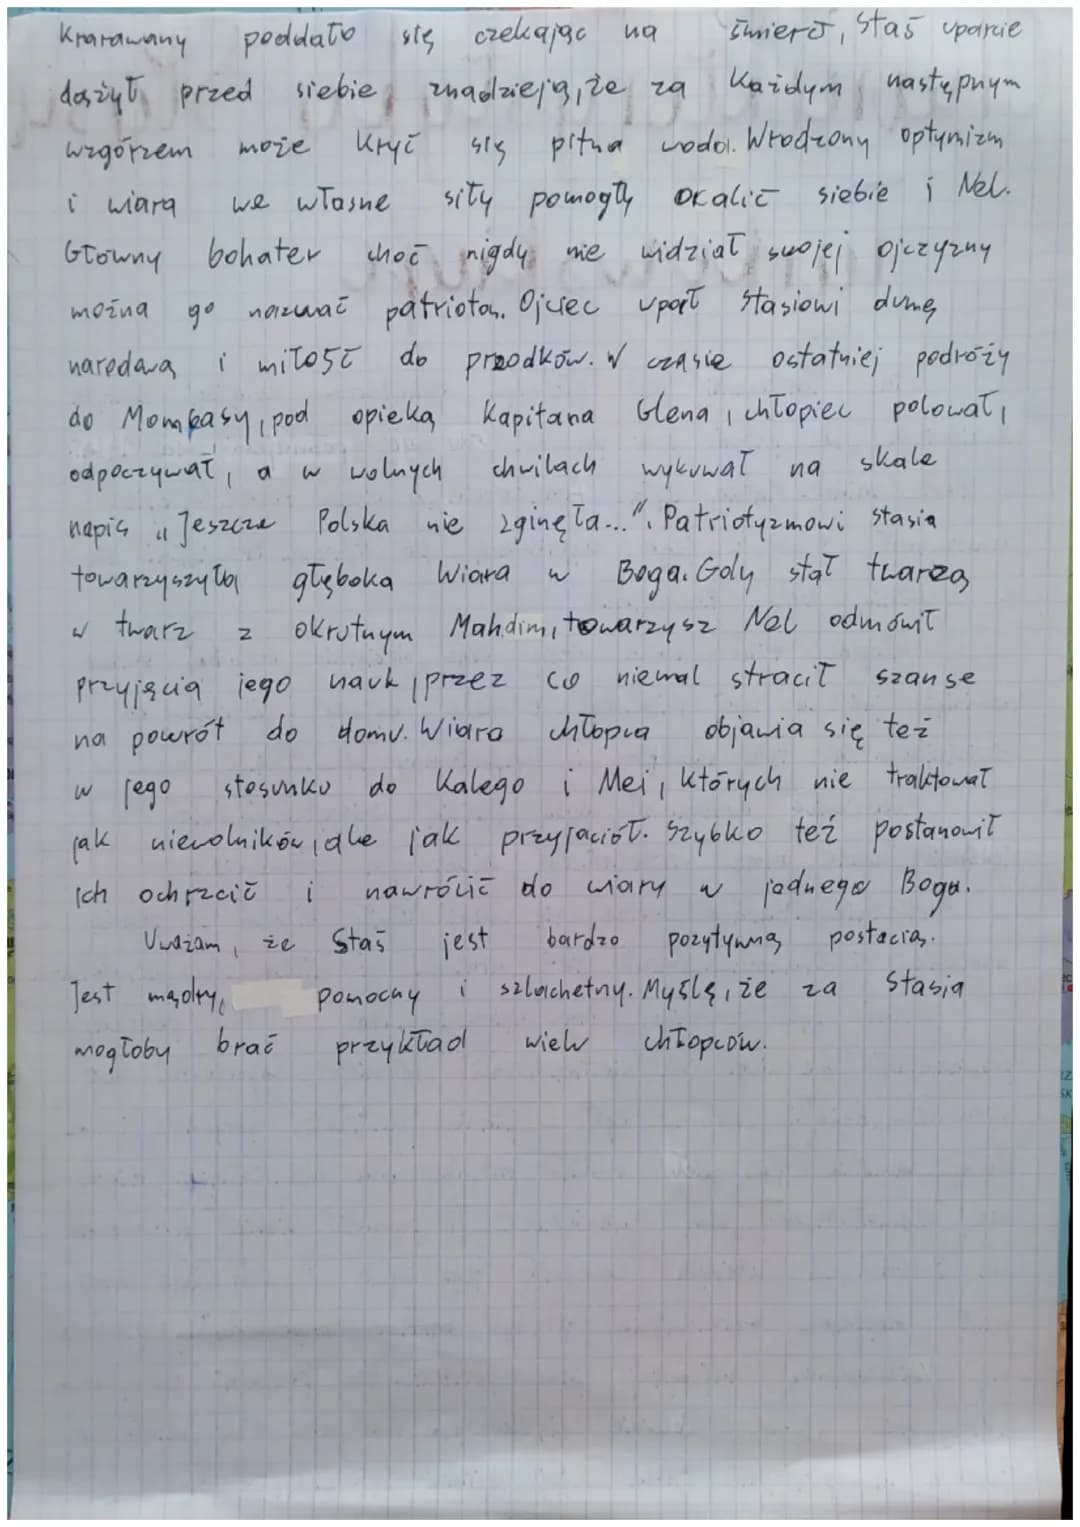 Krarawany poddało się czekając na śmierć, Staś uparcie
dążył przed siebie znadzieją, że za każdym następnym
wzgórzem może kryć się pitna woda. Wrodzony optymizm
i wiara we własne siły pomogły okalić siebie i Nel.
Główny bohater choć nigdy nie widział swojej ojczyzny
można go nazwać patriotą. Ojciec uparł Stasiowi dumę
narodową i miłość do przodków. W czasie ostatniej podróży
do Mombasy, pod opieką kapitana Glena, chłopiec polował,
odpoczywał, a w wolnych chwilach wykuwał na skale
napis „Jeszcze Polska nie zginęła...". Patriotyzmowi Stasia
towarzyszyła głęboka wiara w Boga. Gdy stał twarzą
w twarz z okrutnym Mahdim, towarzysz Nel odmówił
przyjęcia jego nauk, przez co niemal stracił szanse
na powrót do domu. Wiara chłopca objawia się też
w jego stosunku do Kalego i Mei, których nie traktował
jak niewolników, ale jak przyjaciół. Szybko też postanowił
ich ochrzcić i nawrócić do wiary w jednego Boga.
Uważam, że Staś jest bardzo pozytywną postacią.
Jest mądry, pomocny i szlachetny. Myślę, że za Stasia
mogłoby brać przykład wielu chłopców.